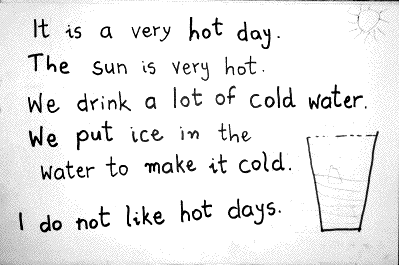 It is a very hot day.
The sun is very hot.
We drink a lot of cold water.
We put ice in the
water to make it cold.
I do not like hot days.